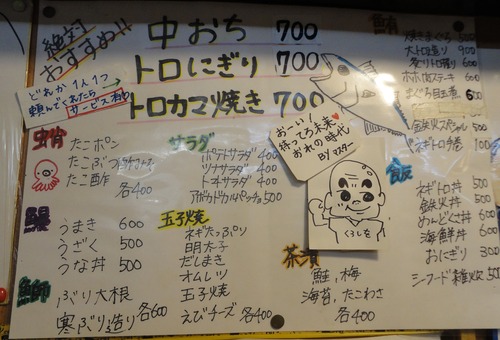 絶対
おすすめ!!
中おち 700
トロにぎり 700
トロカマ焼き 700
どれか1人1つ
頼んでくれたら
サービス
お〜い!
待ってろ未来♥
おれの時代
BYマスター
くろしを
蛸
たこポン
たこぶつ
たこ酢
各400
サラダ
ポテトサラダ 400
ツナサラダ 400
トマトサラダ 400
アボカドカルパッチョ 500
鰻
うまき 600
うざく 500
うな丼 500
玉子焼
ネギたっぷり
明太子
だしまき
オムレツ
玉子焼
えびチーズ 各400
鰤
ぶり大根
寒ぶり造り 各600
茶漬
鮭,梅
海苔,たこわさ
各400
鮪
大トロ造り 900
ホホ肉ステーキ 600
まぐろ目玉煮 600
鉄火スペシャル 500
飯
ネギトロ丼 500
鉄火丼 500
めんどくさ丼 600
海鮮丼 600
おにぎり 300
シーフード雑炊 500